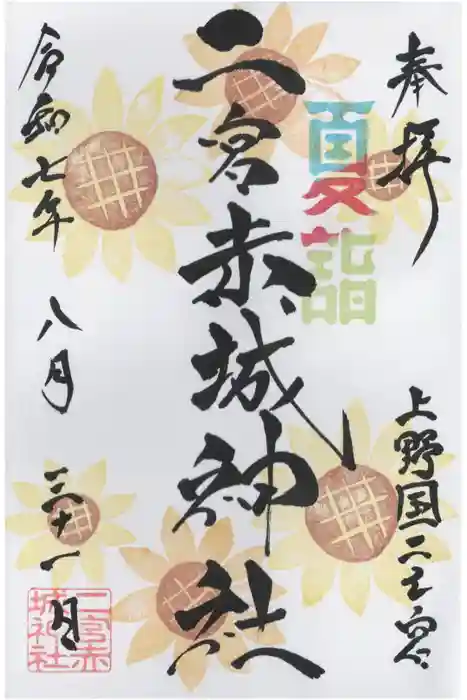 奉拝
上野国二之宮
夏詣
二宮赤城神社
令和七年
八月
三十一日
二宮赤
城神社